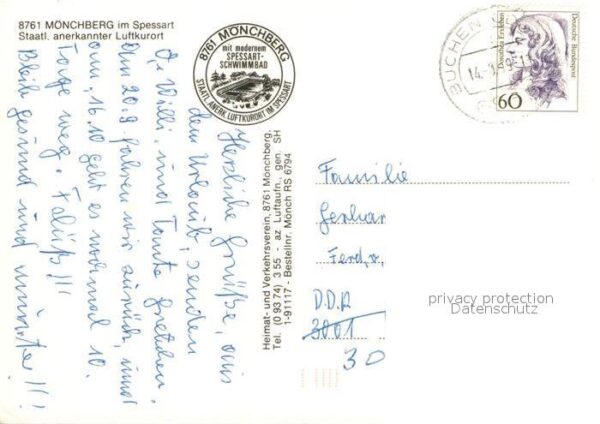 8761 MÖNCHBERG im Spessart
Staatl. anerkannter Luftkurort
8761 MÖNCHBERG
mit modernem
SPESSART-
SCHWIMMBAD
STAATL. ANERK. LUFTKURORT IM SPESSART
Herzliche Grüße, aus
dem Urlaub, senden
Willi, und Tante Gretchen.
am 20.9. fahren wir zurück, und
am, 16.10 geht es nochmal 10.
Tage weg.
Bleib gesund und munter!!
Heimat- und Verkehrsverein, 8761 Mönchberg,
Tel. (0 93 74) 3 55 - az Luftaufn., gen. SH
1-91117 - Bestellnr. Mönch RS 6794
BUCHEN
14.
Dorothea Erxleben
Deutsche Bundespost
60
Familie
Gerhar
Ferd.
D.D.R
3001
30
privacy protection
Datenschutz